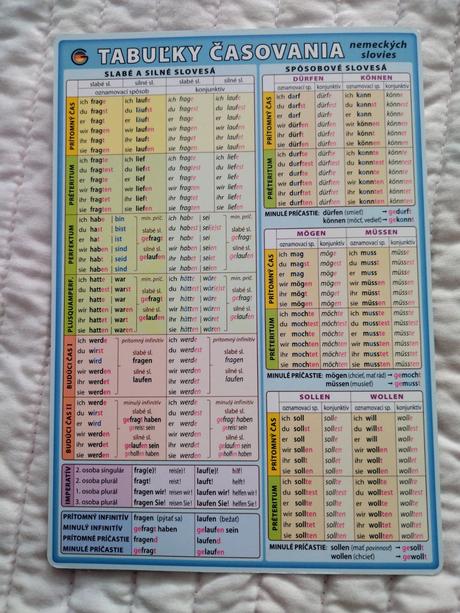 TABUĽKY ČASOVANIA nemeckých slovies
SLABÉ A SILNÉ SLOVESÁ
slabé sl. silné sl. slabé sl. silné sl.
oznamovací spôsob konjunktív
PRÍTOMNÝ ČAS
ich frage ich laufe ich frage ich laufe
du fragst du läufst du fragest du laufest
er fragt er läuft er frage er laufe
wir fragen wir laufen wir fragen wir laufen
ihr fragt ihr lauft ihr fraget ihr laufet
sie fragen sie laufen sie fragen sie laufen
PRÉTERITUM
ich fragte ich lief ich fragte ich liefe
du fragtest du liefst du fragtest du liefest
er fragte er lief er fragte er liefe
wir fragten wir liefen wir fragten wir liefen
ihr fragtet ihr lieft ihr fragtet ihr liefet
sie fragten sie liefen sie fragten sie liefen
PERFEKTUM
ich habe bin min. príč. ich habe sei min. príč.
du hast bist slabé sl. du habest sei(e)st slabé sl.
er hat ist gefragt er habe sei gefragt
wir haben sind silné sl. wir haben seien silné sl.
ihr habt seid gelaufen ihr habet seiet gelaufen
sie haben sind sie haben seien
PLUSQUAMPERF.
ich hatte war min. príč. ich hätte wäre min. príč.
du hattest warst slabé sl. du hättest wär(e)st slabé sl.
er hatte war gefragt er hätte wäre gefragt
wir hatten waren silné sl. wir hätten wären silné sl.
ihr hattet wart gelaufen ihr hättet wäret gelaufen
sie hatten waren sie hätten wären
BUDÚCI ČAS I
ich werde prítomný infinitív ich werde prítomný infinitív
du wirst slabé sl. du werdest slabé sl.
er wird fragen er werde fragen
wir werden silné sl. wir werden silné sl.
ihr werdet laufen ihr werdet laufen
sie werden sie werden
BUDÚCI ČAS II
ich werde minulý infinitív ich werde minulý infinitív
du wirst slabé sl. du werdest slabé sl.
er wird gefragt haben er werde gefragt haben
wir werden silné sl. wir werden silné sl.
ihr werdet gelaufen sein ihr werdet gelaufen sein
sie werden geholfen haben sie werden geholfen haben
IMPERATÍV
2. osoba singulár frag(e)! reis(e)! lauf(e)! hilf!
2. osoba plurál fragt! reist! lauft! helft!
1. osoba plurál fragen wir! reisen wir! laufen wir! helfen wir!
3. osoba plurál fragen Sie! reisen Sie! laufen Sie! helfen Sie!
PRÍTOMNÝ INFINITÍV fragen (pýtať sa) laufen (bežať)
MINULÝ INFINITÍV gefragt haben gelaufen sein
PRÍTOMNÉ PRÍČASTIE fragend laufend
MINULÉ PRÍČASTIE gefragt gelaufen
SPÔSOBOVÉ SLOVESÁ
DÜRFEN KÖNNEN
oznamovací sp. konjunktív oznamovací sp. konjunktív
PRÍTOMNÝ ČAS
ich darf dürfe ich kann könne
du darfst dürfest du kannst könnest
er darf dürfe er kann könne
wir dürfen dürfen wir können können
ihr dürft dürfet ihr könnt könnet
sie dürfen dürfen sie können können
PRÉTERITUM
ich durfte dürfte ich konnte könnte
du durftest dürftest du konntest könntest
er durfte dürfte er konnte könnte
wir durften dürften wir konnten könnten
ihr durftet dürftet ihr konntet könntet
sie durften dürften sie konnten könnten
MINULÉ PRÍČASTIE: dürfen (smieť) → gedurft
können (môcť, vedieť) → gekonnt
MÖGEN MÜSSEN
oznamovací sp. konjunktív oznamovací sp. konjunktív
PRÍTOMNÝ ČAS
ich mag möge ich muss müsse
du magst mögest du musst müssest
er mag möge er muss müsse
wir mögen mögen wir müssen müssen
ihr mögt möget ihr müsst müsset
sie mögen mögen sie müssen müssen
PRÉTERITUM
ich mochte möchte ich musste müsste
du mochtest möchtest du musstest müsstest
er mochte möchte er musste müsste
wir mochten möchten wir mussten müssten
ihr mochtet möchtet ihr musstet müsstet
sie mochten möchten sie mussten müssten
MINULÉ PRÍČASTIE: mögen (chcieť, mať rád) → gemocht
müssen (musieť) → gemusst
SOLLEN WOLLEN
oznamovací sp. konjunktív oznamovací sp. konjunktív
PRÍTOMNÝ ČAS
ich soll solle ich will wolle
du sollst sollest du willst wollest
er soll solle er will wolle
wir sollen sollen wir wollen wollen
ihr sollt sollet ihr wollt wollet
sie sollen sollen sie wollen wollen
PRÉTERITUM
ich sollte sollte ich wollte wollte
du solltest solltest du wolltest wolltest
er sollte sollte er wollte wollte
wir sollten sollten wir wollten wollten
ihr solltet solltet ihr wolltet wolltet
sie sollten sollten sie wollten wollten
MINULÉ PRÍČASTIE: sollen (mať povinnosť) → gesollt
wollen (chcieť) → gewollt